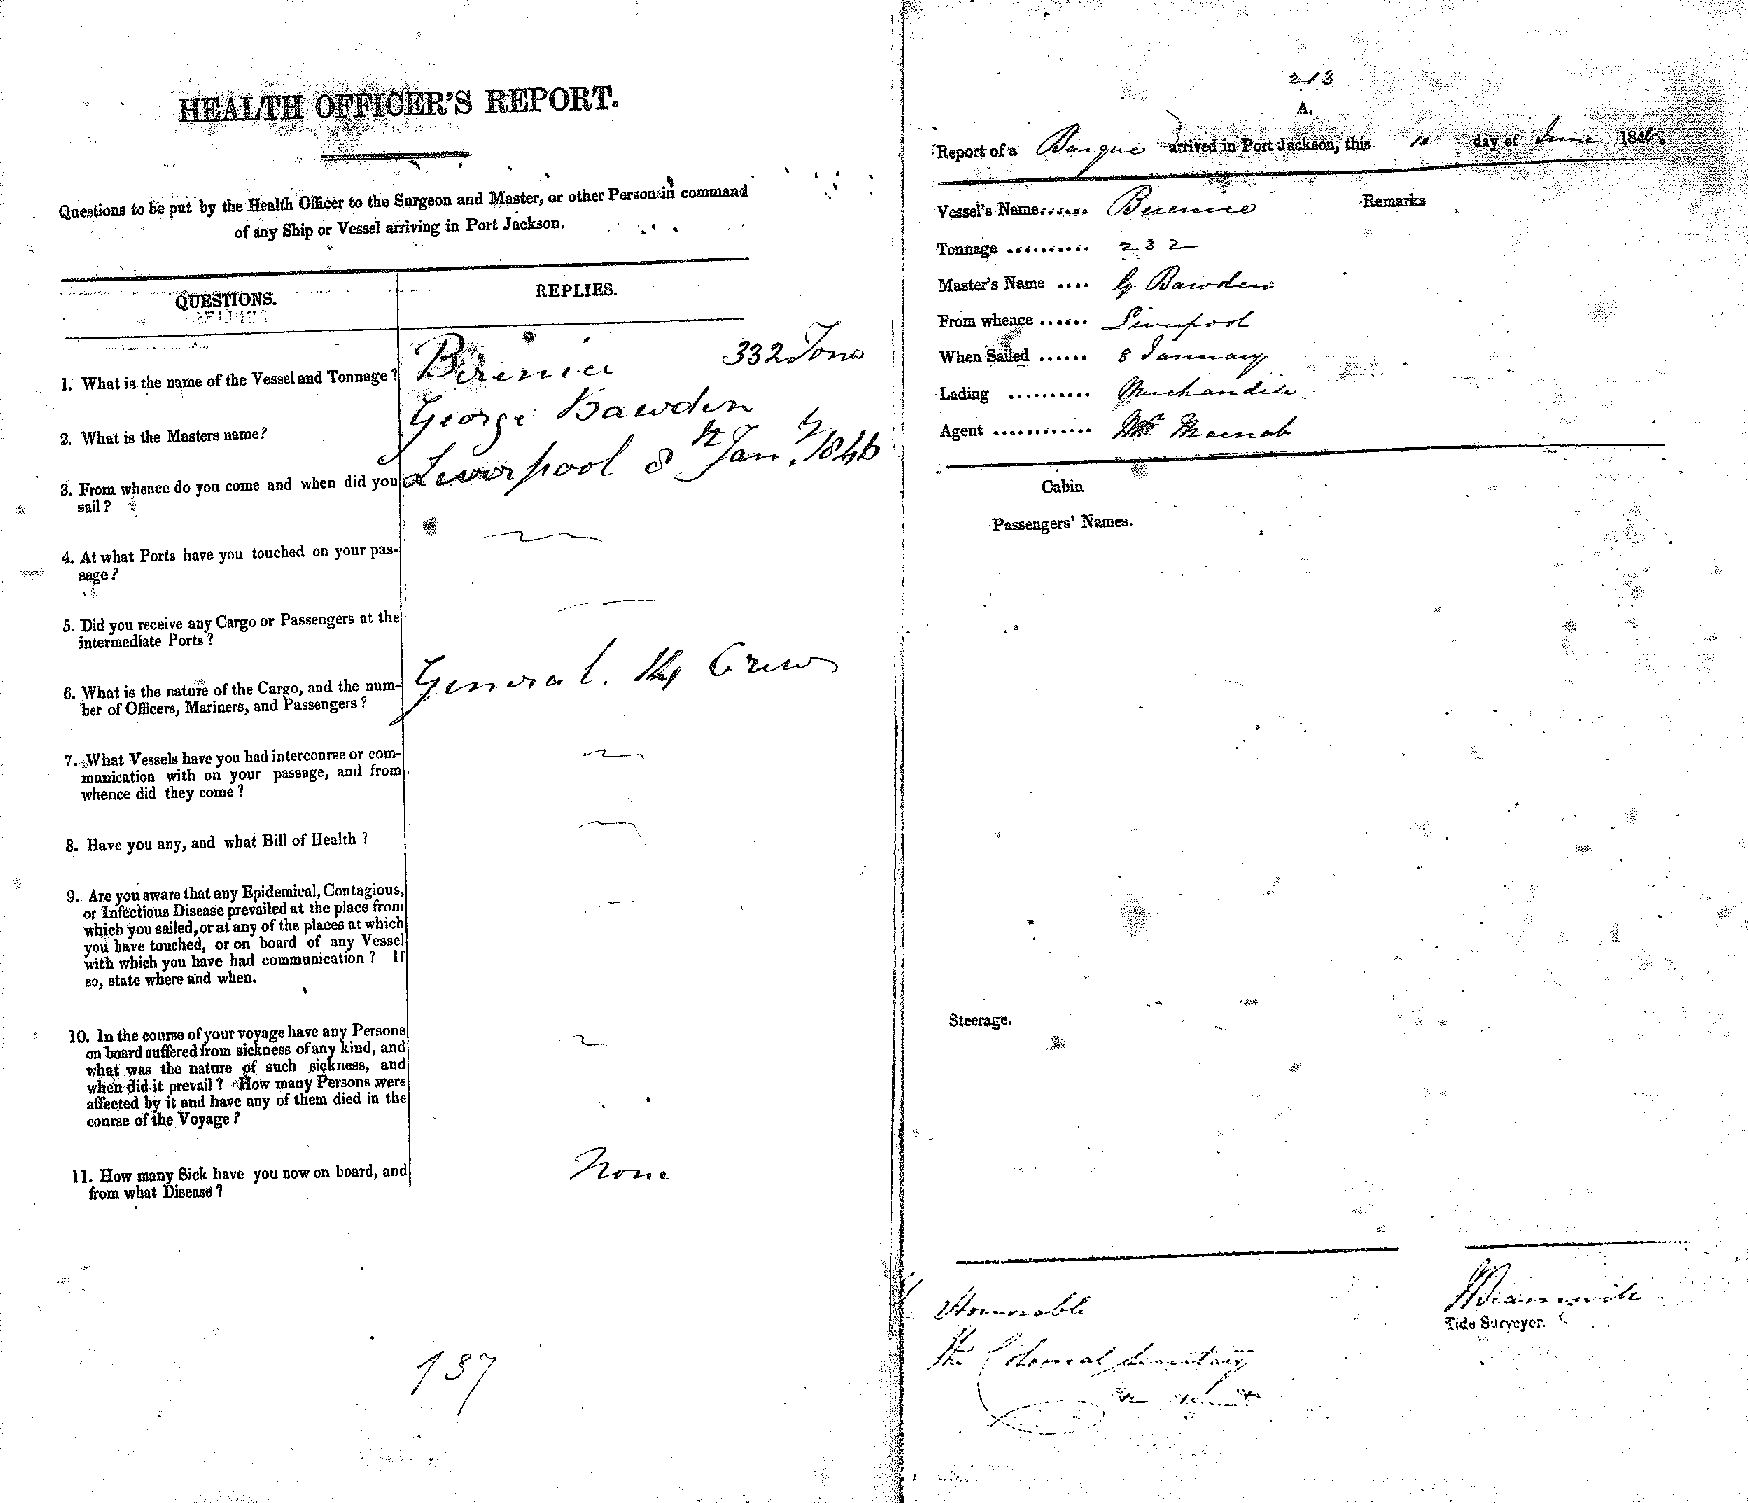 HEALTH OFFICER'S REPORT.
Questions to be put by the Health Officer to the Surgeon and Master, or other Person in command
of any Ship or Vessel arriving in Port Jackson.
QUESTIONS.
REPLIES.
1. What is the name of the Vessel and Tonnage?
Berenice 332 Tons
2. What is the Masters name?
George Bawden
3. From whence do you come and when did you
sail?
Liverpool 8th Jany. 1846
4. At what Ports have you touched on your pas-
sage?
5. Did you receive any Cargo or Passengers at the
intermediate Ports?
6. What is the nature of the Cargo, and the num-
ber of Officers, Mariners, and Passengers?
General. 14 Crew
7. What Vessels have you had intercourse or com-
munication with on your passage, and from
whence did they come?
8. Have you any, and what Bill of Health?
9. Are you aware that any Epidemical, Contagious,
or Infectious Disease prevailed at the place from
which you sailed, or at any of the places at which
you have touched, or on board of any Vessel
with which you have had communication? If
so, state where and when.
10. In the course of your voyage have any Persons
on board suffered from sickness of any kind, and
what was the nature of such sickness, and
when did it prevail? How many Persons were
affected by it and have any of them died in the
course of the Voyage?
11. How many Sick have you now on board, and
from what Disease?
None
137
213
A.
Report of a Barque arrived in Port Jackson, this 10 day of June 1846.
Vessel's Name...... Berenice
Remarks
Tonnage .......... 232
Master's Name .... G Bawden
From whence ...... Liverpool
When Sailed ...... 8 January
Lading .......... Merchandise
Agent ............
Cabin
Passengers' Names.
Steerage.
Honorable
The Colonial Secretary
Tide Surveyor.